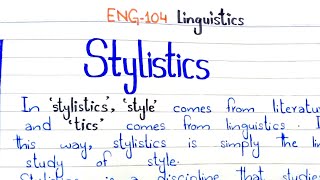 ENG-104 Linguistics
Stylistics
In 'stylistics', 'style' comes from literatur
and 'tics' comes from linguistics. I
this way, stylistics is simply the lin
study of style.
Stylistics is a discipline that studie